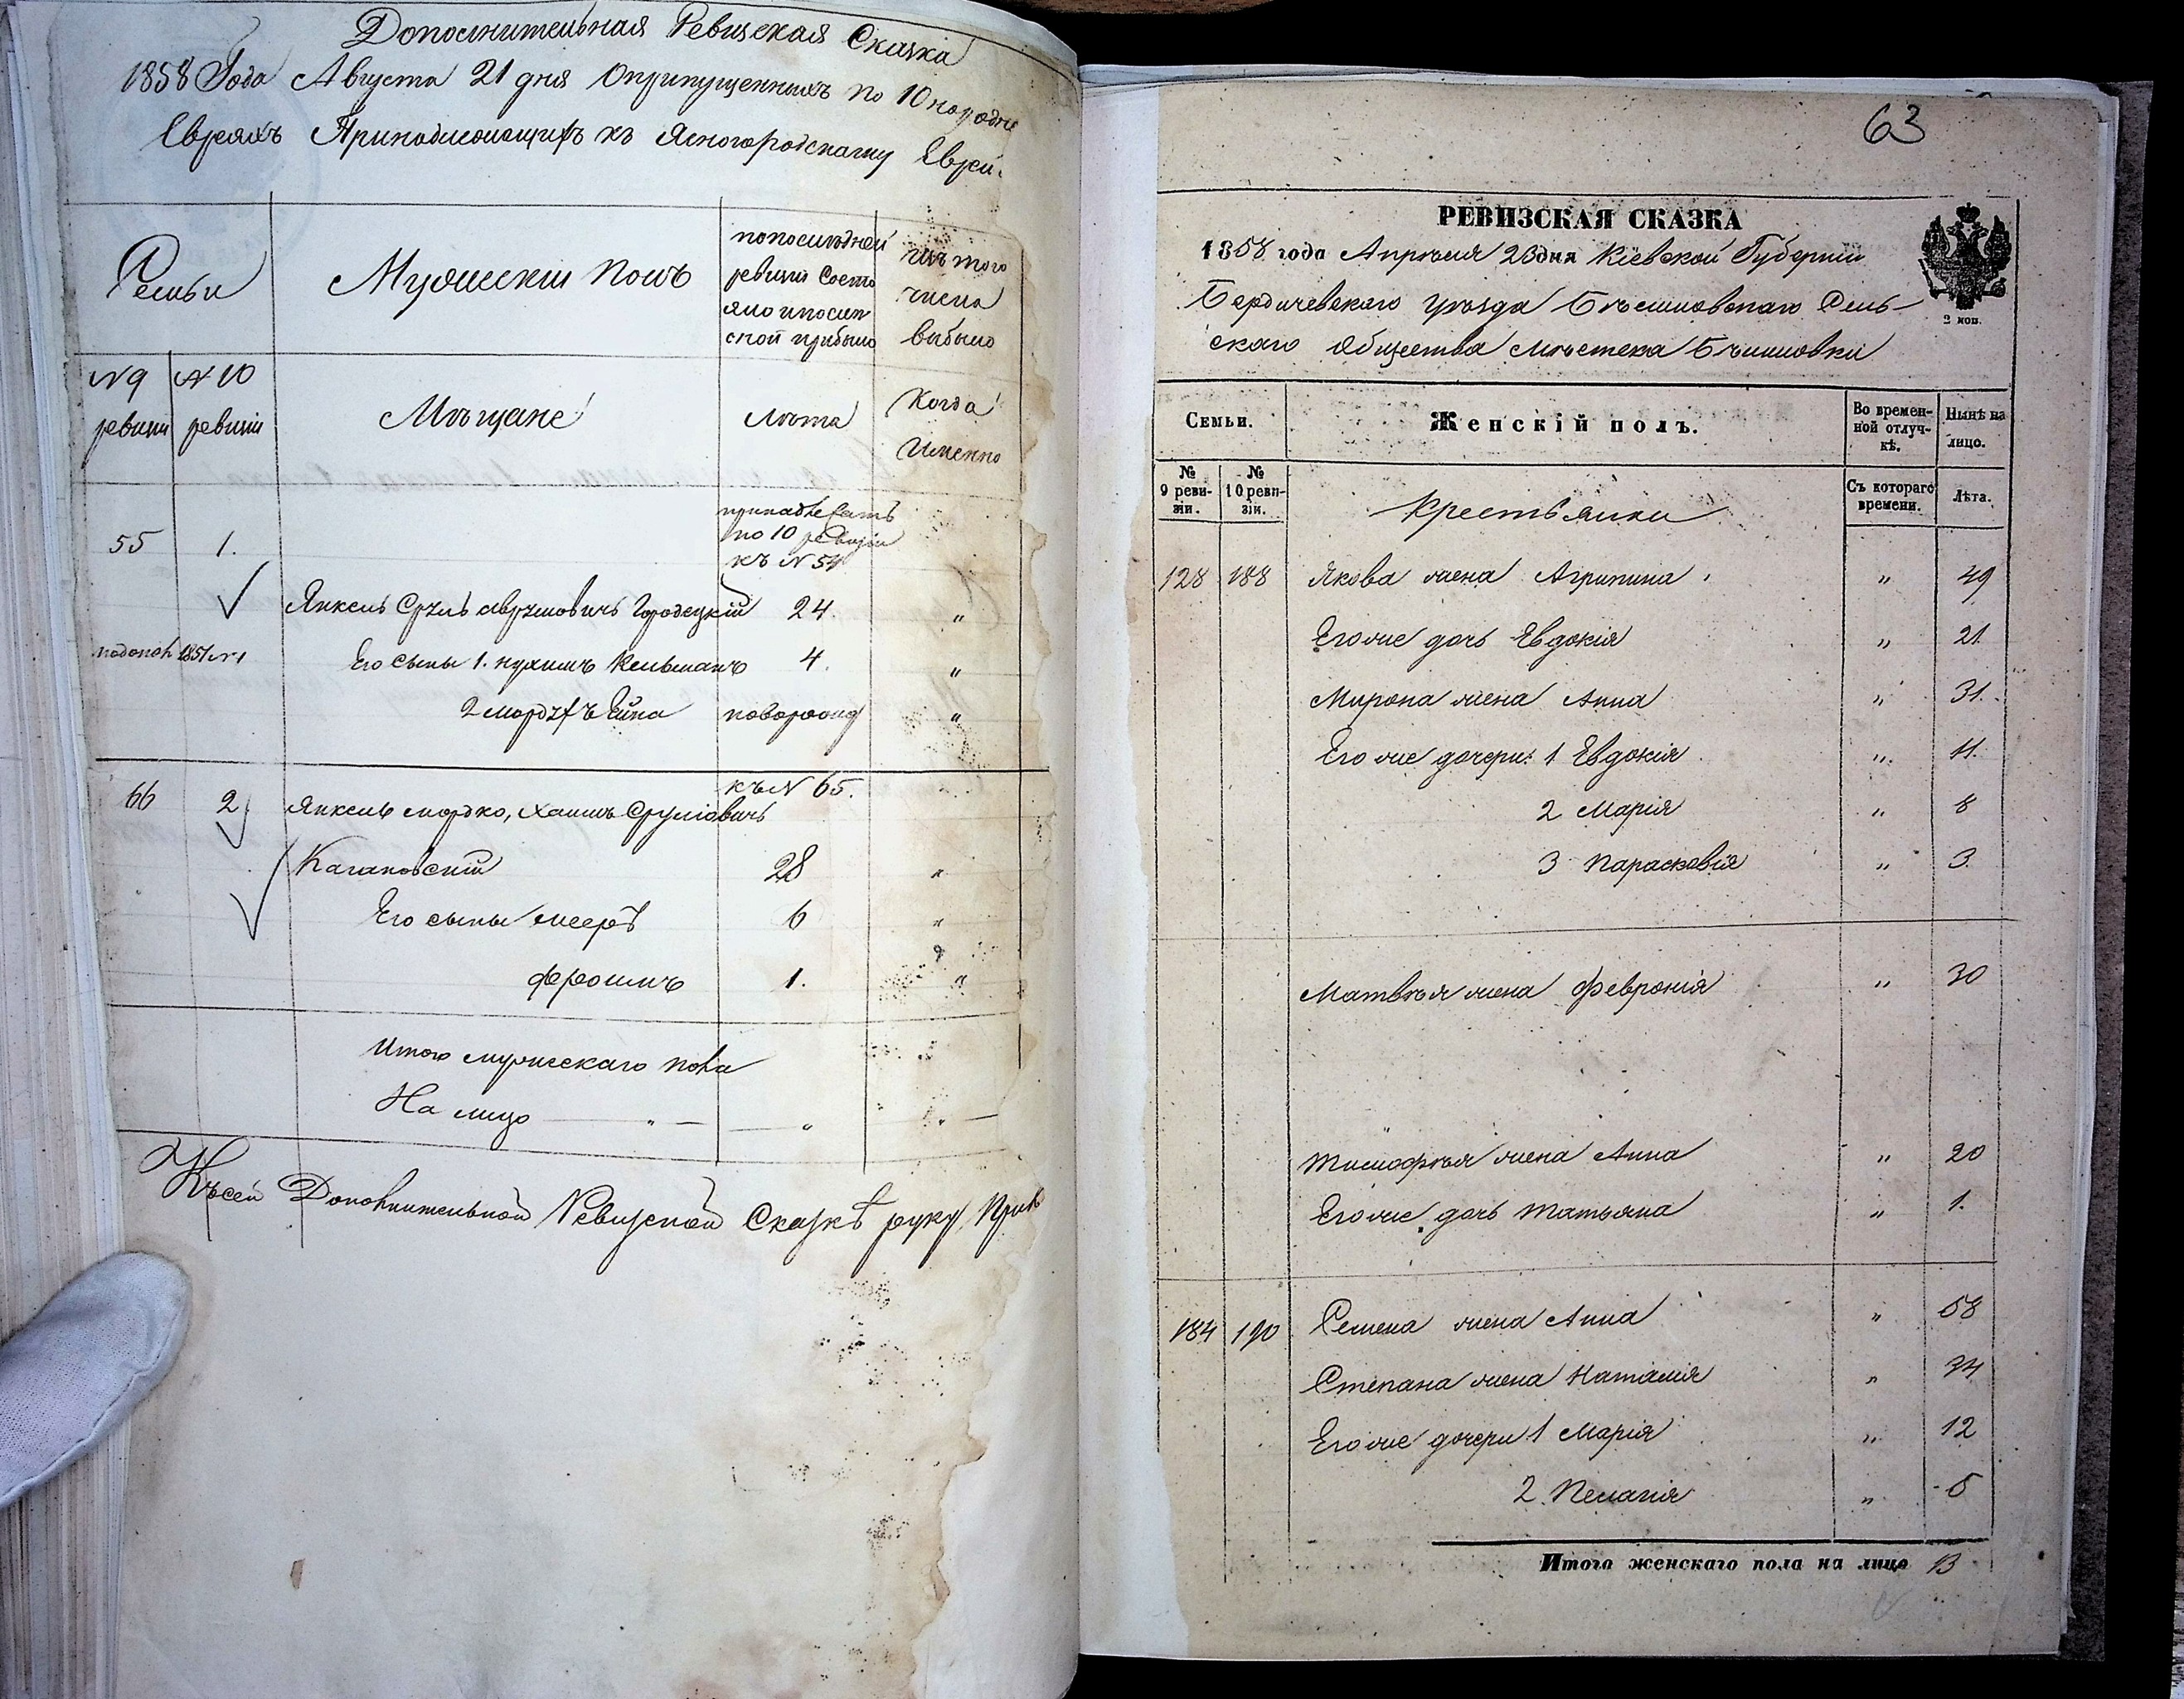 Дополнительная Ревизская Сказка
1858 Года Августа 21 дня О припущенныхъ по 10 народне
Евреяхъ Принадлежащихъ къ Ясногородскому Еврей.
Семьи
Мужескій полъ
по последней
ревизіи состо
яло и после
сной прибыло
Изъ того
числа
выбыло
N 9
ревизіи
N 10
ревизіи
Мѣщане
Лѣта
Когда
Именно
55 1. принадлежатъ
по 10 ревизіи
къ N 54
Янкель Сруль Аврумовичъ Городецкій 24 "
1851 N 1 Его сыны 1. Нухимъ Кельманъ 4. "
2 Мордхъ Ейна новорожд "
66 2 къ N 65.
Янкель Мордко, Хаимъ Сруліовичъ
Кагановскій 28 "
Его сыны Мееръ 6 "
1. "
Итого мужескаго пола
На лицо — " — — " " —
Къ сей Дополнительной Ревизской Сказкѣ руку Прил
63
РЕВИЗСКАЯ СКАЗКА
1858 года Апрѣля 23 дня Кіевской Губерніи
Бердичевскаго уѣзда Бѣлиловскаго Сель-
скаго Общества мѣстечка Бѣлиловки
2 коп.
Семьи.
Женскій полъ.
Во времен-
ной отлуч-
кѣ.
Нынѣ на
лицо.
№
9 реви-
зіи.
№
10 реви-
зіи.
Крестьянки
Съ котораго
времени.
Лѣта.
128 188 Якова жена Агрипина " 49
Его же дочь Евдокія " 21
Мирона жена Анна " 31.
Его же дочери: 1 Евдокія " 11.
2 Марія " 8
3 Парасковія " 3.
Матвѣя жена Февронія " 30
Тимофѣя жена Анна " 20
Его же дочь Татьяна " 1.
184 190 Семена жена Анна " 58
Степана жена Наталія " 34
Его же дочери 1 Марія " 12
2 Пелагія " 5
Итого женскаго пола на лицо 13